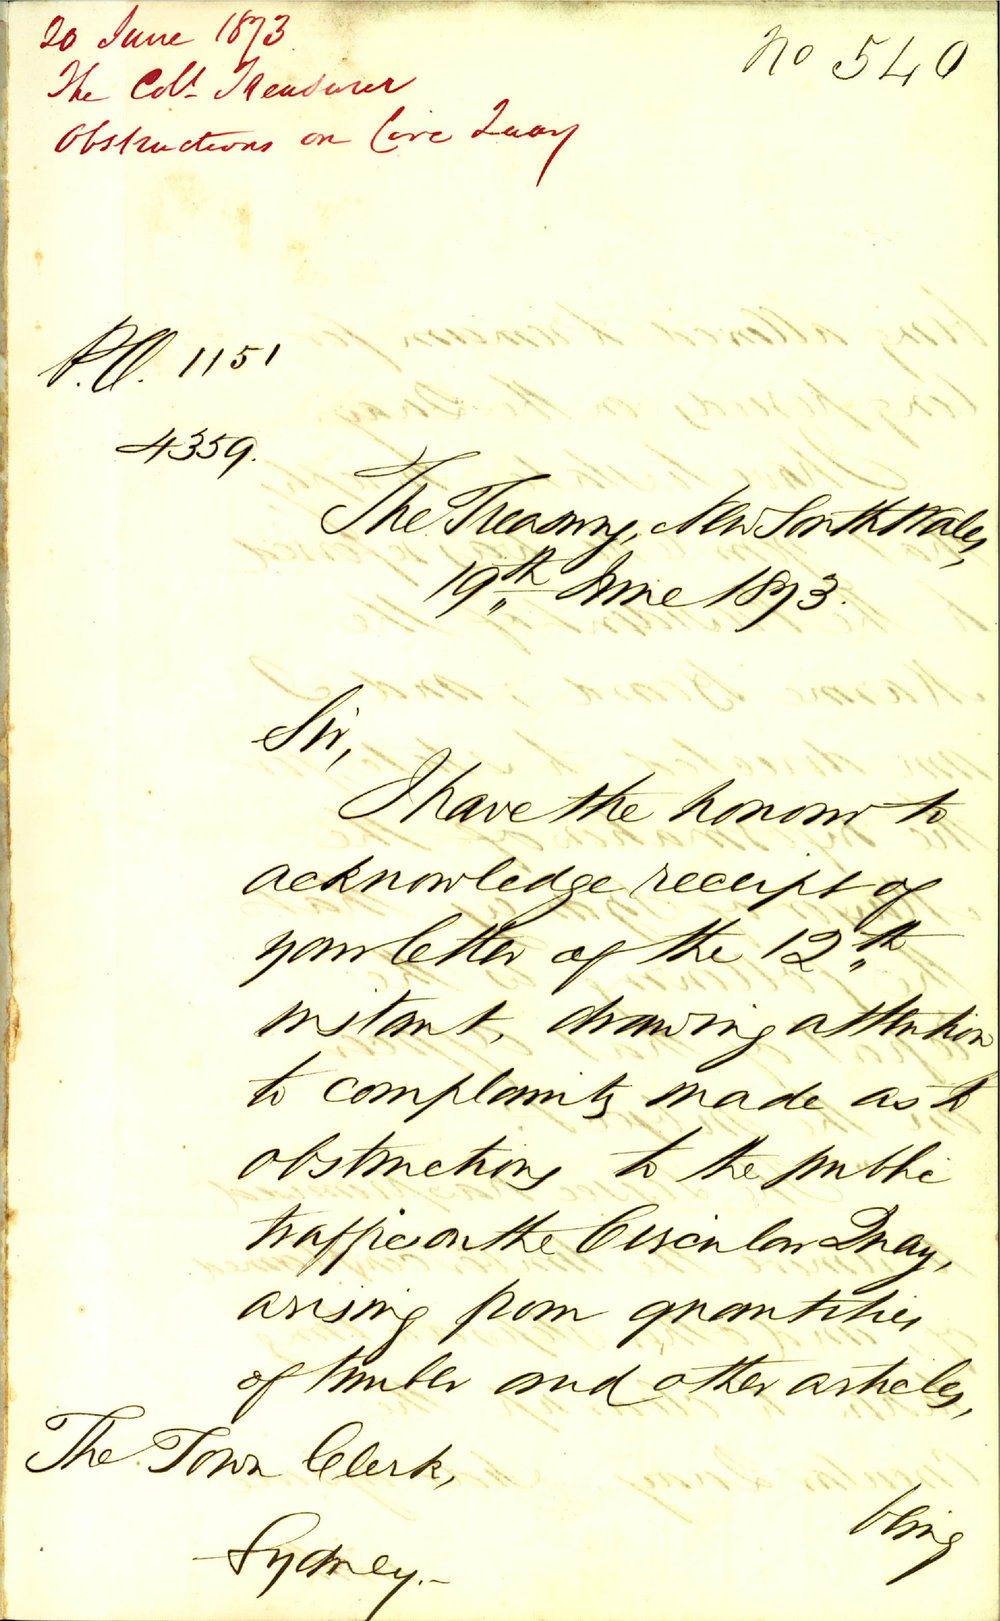 20 June 1873
The Coll. Treasurer
Obstructions on Circ Quay
No 540
P.O. 1151
4359.
The Treasury, New South Wales,
19th June 1873.
Sir,
I have the honour to
acknowledge receipt of
your letter of the 12th
instant, drawing attention
to complaints made as to
obstructions to the public
traffic on the Circular Quay,
arising from quantities
of timber and other articles,
The Town Clerk,
Sydney.-
being